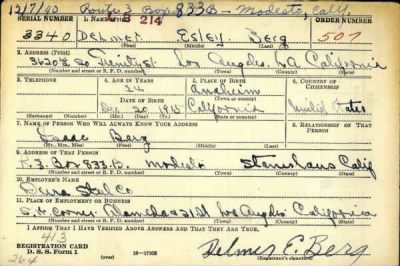 12/7/40 Route 3 Box 833B - Modesto, Calif.
SERIAL NUMBER 1. NAME (Print) ORDER NUMBER
214
3340 Delmer Esley Berg 507
(First) (Middle) (Last)
2. ADDRESS (Print)
So Trinity St. Los Angeles. LA California
(Number and street or R. F. D. number) (Town) (County) (State)
3. TELEPHONE 4. AGE IN YEARS 5. PLACE OF BIRTH 6. COUNTRY OF CITIZENSHIP
24 Anaheim
DATE OF BIRTH (Town or county)
Dec 20 1915 California United States
(Exchange) (Number) (Mo.) (Day) (Yr.) (State or country)
7. NAME OF PERSON WHO WILL ALWAYS KNOW YOUR ADDRESS 8. RELATIONSHIP OF THAT PERSON
Isaac Berg
(Mr., Mrs., Miss) (First) (Middle) (Last)
9. ADDRESS OF THAT PERSON
R.3. Box 833.B. Modesto Stanislaus Calif
(Number and street or R. F. D. number) (Town) (County) (State)
10. EMPLOYER'S NAME
Dura Stel Co
11. PLACE OF EMPLOYMENT OR BUSINESS
Corner Alameda & 21 St Los Angeles California
(Number and street or R. F. D. number) (Town) (County) (State)
I AFFIRM THAT I HAVE VERIFIED ABOVE ANSWERS AND THAT THEY ARE TRUE.
413
REGISTRATION CARD
D. S. S. Form 1 16-17105 Delmer E. Berg
264 (Registrant's signature)